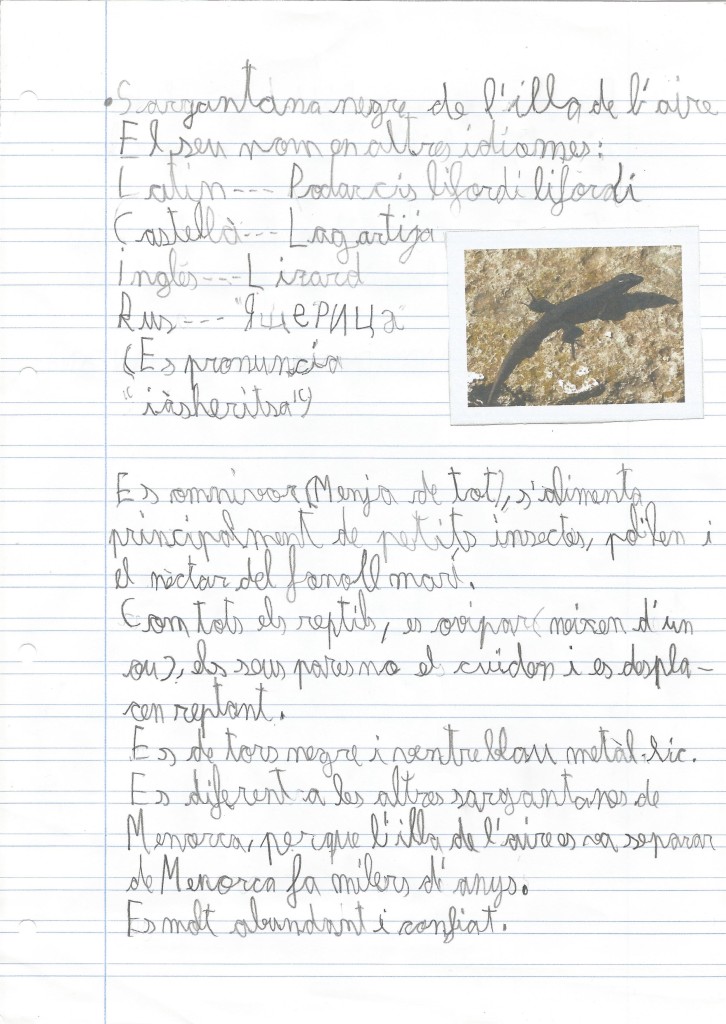 • Sargantana negre de l'illa de l'aire
El seu nom en altres idiomes:
Latin--- Podarcis lifordi lifordi
Castellà--- Lagartija
inglés--- Lizard
Rus--- "ЯщЕРИЦа"
(Es pronuncia
"iàsheritsa")
Es omnivor (Menja de tot), s'alimenta
principalment de petits insectes, pol·len i
el nèctar del fonoll marí.
Com tots els reptils, es ovipar (neixen d'un
ou), els seus pares no el cuiden i es despla-
cen reptant.
Es de tors negre i ventre blau metàl·lic.
Es diferent a les altres sargantanes de
Menorca, perque l'illa de l'aire es va separar
de Menorca fa milers d'anys.
Es molt abundant i confiat.